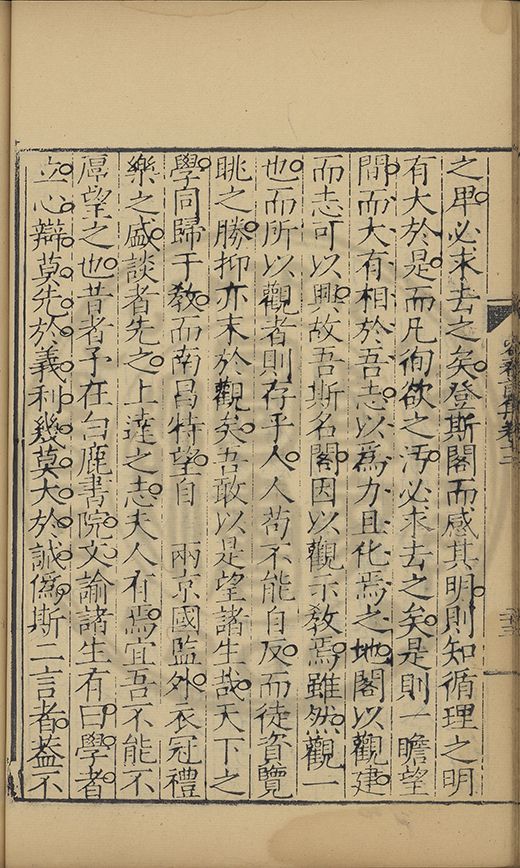 之卑必求去之矣登斯閣而感其明則知循理之明
有大於是而凡徇欲之污必求去之矣是則一瞻望
間而大有相於吾志以爲力且化焉之地閣以觀建
而志可以興故吾斯名閣因以觀示敎焉雖然觀一
也而所以觀者則存乎人人苟不能自反而徒資覽
眺之勝抑亦末於觀矣吾敢以是望諸生哉天下之
學同歸于敎而南昌特望自 兩京國監外衣冠禮
樂之盛談者先之上達之志夫人有焉宜吾不能不
厚望之也昔者予在白鹿書院文諭諸生有曰學者
立心辯莫先於義利幾莫大於誠僞斯二言者蓋不